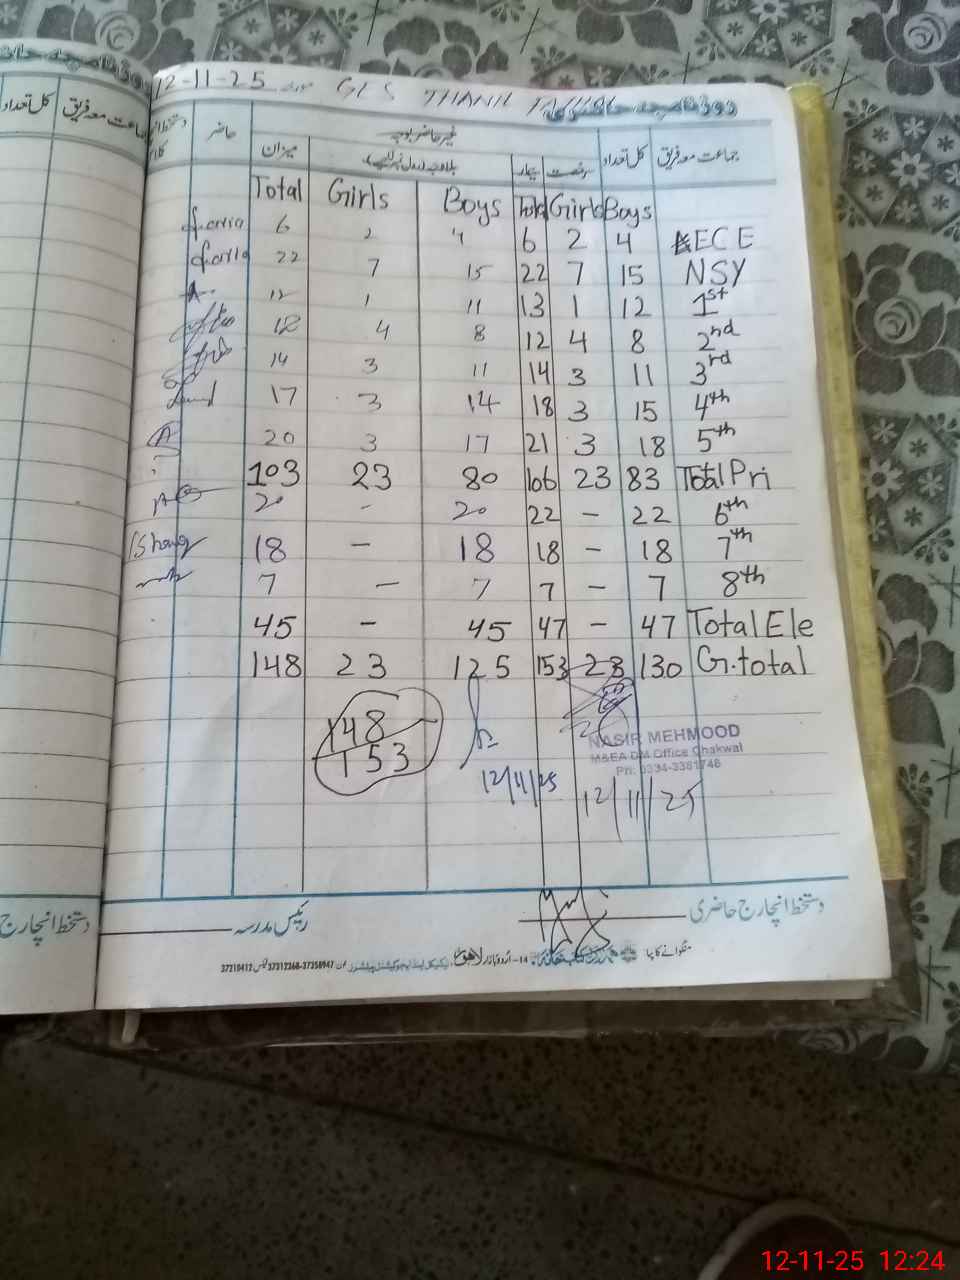 12-11-25 مورخہ GES THANIL
روزنامچہ حاضری
جماعت معہ فریق کل تعداد رخصت بیمار غیر حاضر بوجہ میزان حاضر
Total Girls Boys Total Girls Boys
6 2 4 6 2 4 ECE
22 7 15 22 7 15 NSY
12 1 11 13 1 12 1st
12 4 8 12 4 8 2nd
14 3 11 14 3 11 3rd
17 3 14 18 3 15 4th
20 3 17 21 3 18 5th
103 23 80 106 23 83 Total Pri
20 - 20 22 - 22 6th
18 - 18 18 - 18 7th
7 - 7 7 - 7 8th
45 - 45 47 - 47 Total Ele
148 23 125 153 23 130 G.total
148
153
NASIR MEHMOOD
M&EA DM Office Chakwal
Ph: 0334-3381748
12/11/25
12/11/25
دستخط انچارج حاضری
رئیس مدرسہ
منگوانے کا پتا
14-اردو بازار لاہور
37210412 37312268-37358947
کل تعداد جماعت معہ فریق
دستخط انچارج
12-11-25 12:24